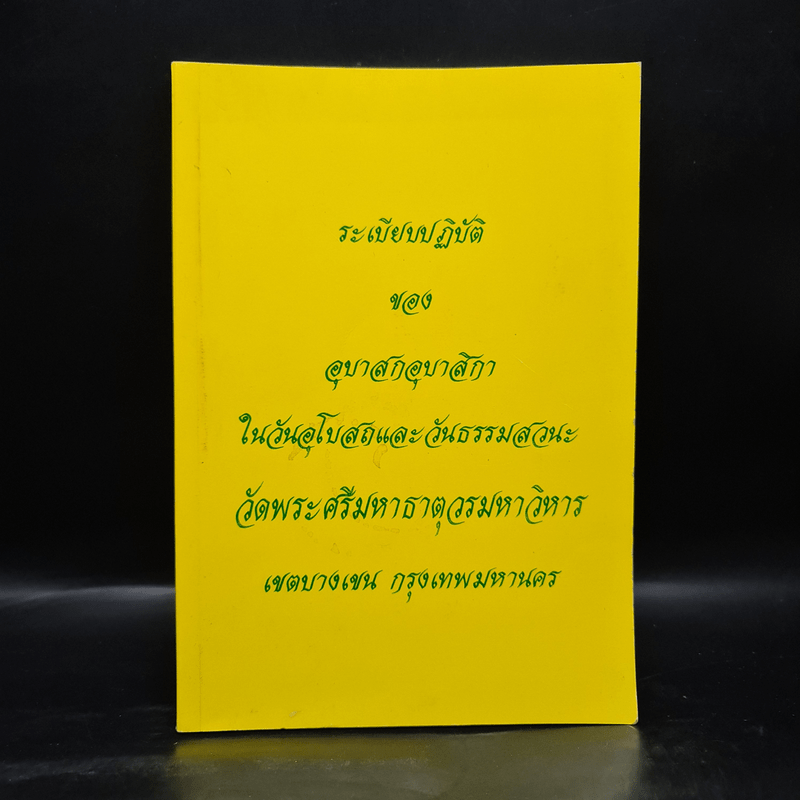 ระเบียบปฏิบัติ
ของ
อุบาสกอุบาสิกา
ในวันอุโบสถและวันธรรมสวนะ
วัดพระศรีมหาธาตุวรมหาวิหาร
เขตบางเขน กรุงเทพมหานคร